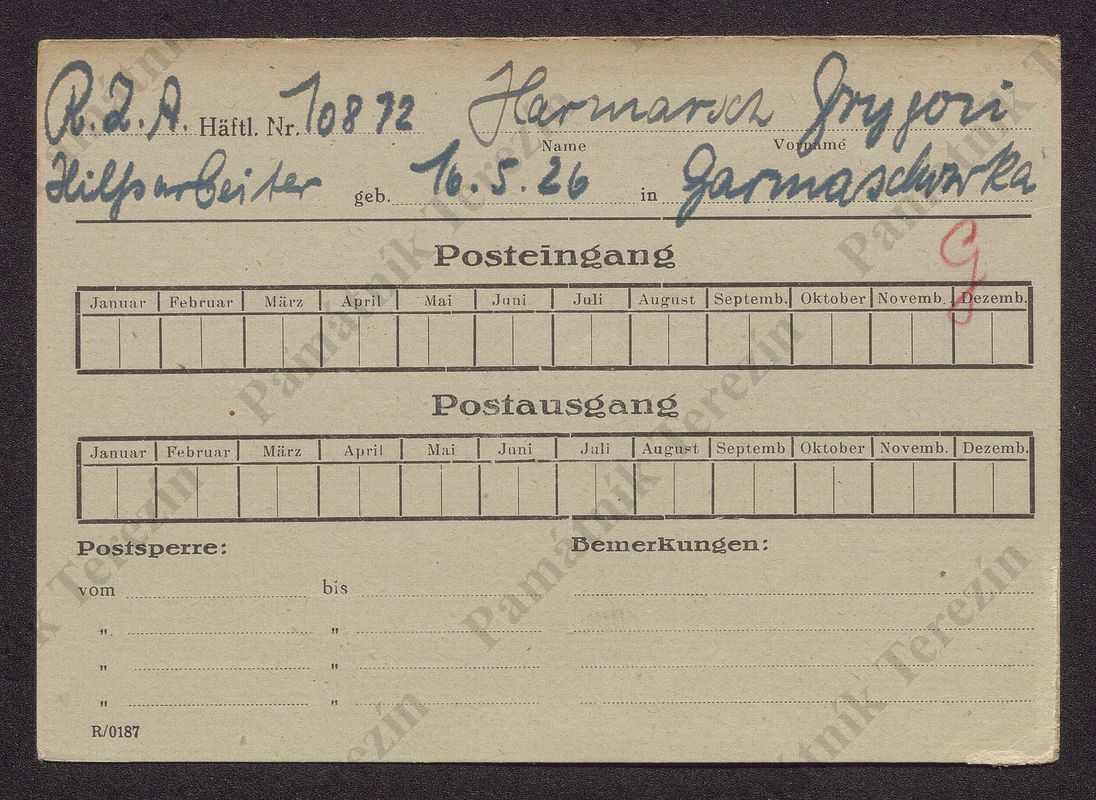 R.Z.A. Häftl. Nr. 10872 Harmarsch Grygori
Name Vorname
Hilfsarbeiter geb. 16.5.26 in
Posteingang
G
Januar Februar März April Mai Juni Juli August Septemb. Oktober Novemb. Dezemb.
Postausgang
Januar Februar März April Mai Juni Juli August Septemb Oktober Novemb. Dezemb.
Postsperre: Bemerkungen:
vom bis
„ „
„ „
„ „
R/0187
Památník Terezín